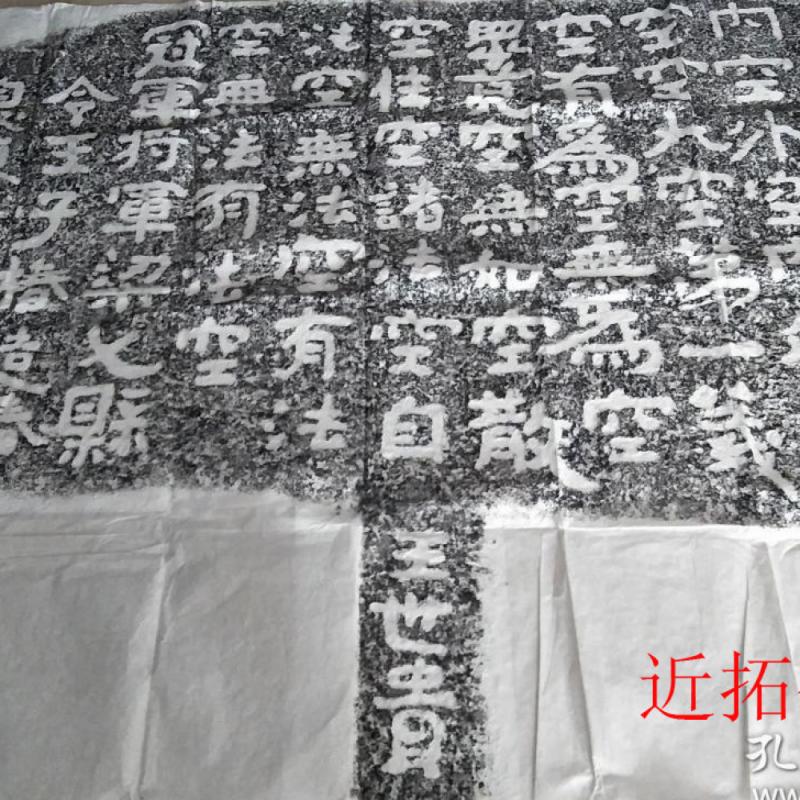 内空外空
空空大空第一義
空有為空無為空
畢竟空無始空散
空性空諸法空自
法空無法空有法
空無法有法空
冠軍将軍梁父縣
令王子椿造
王世貴
近拓
孔